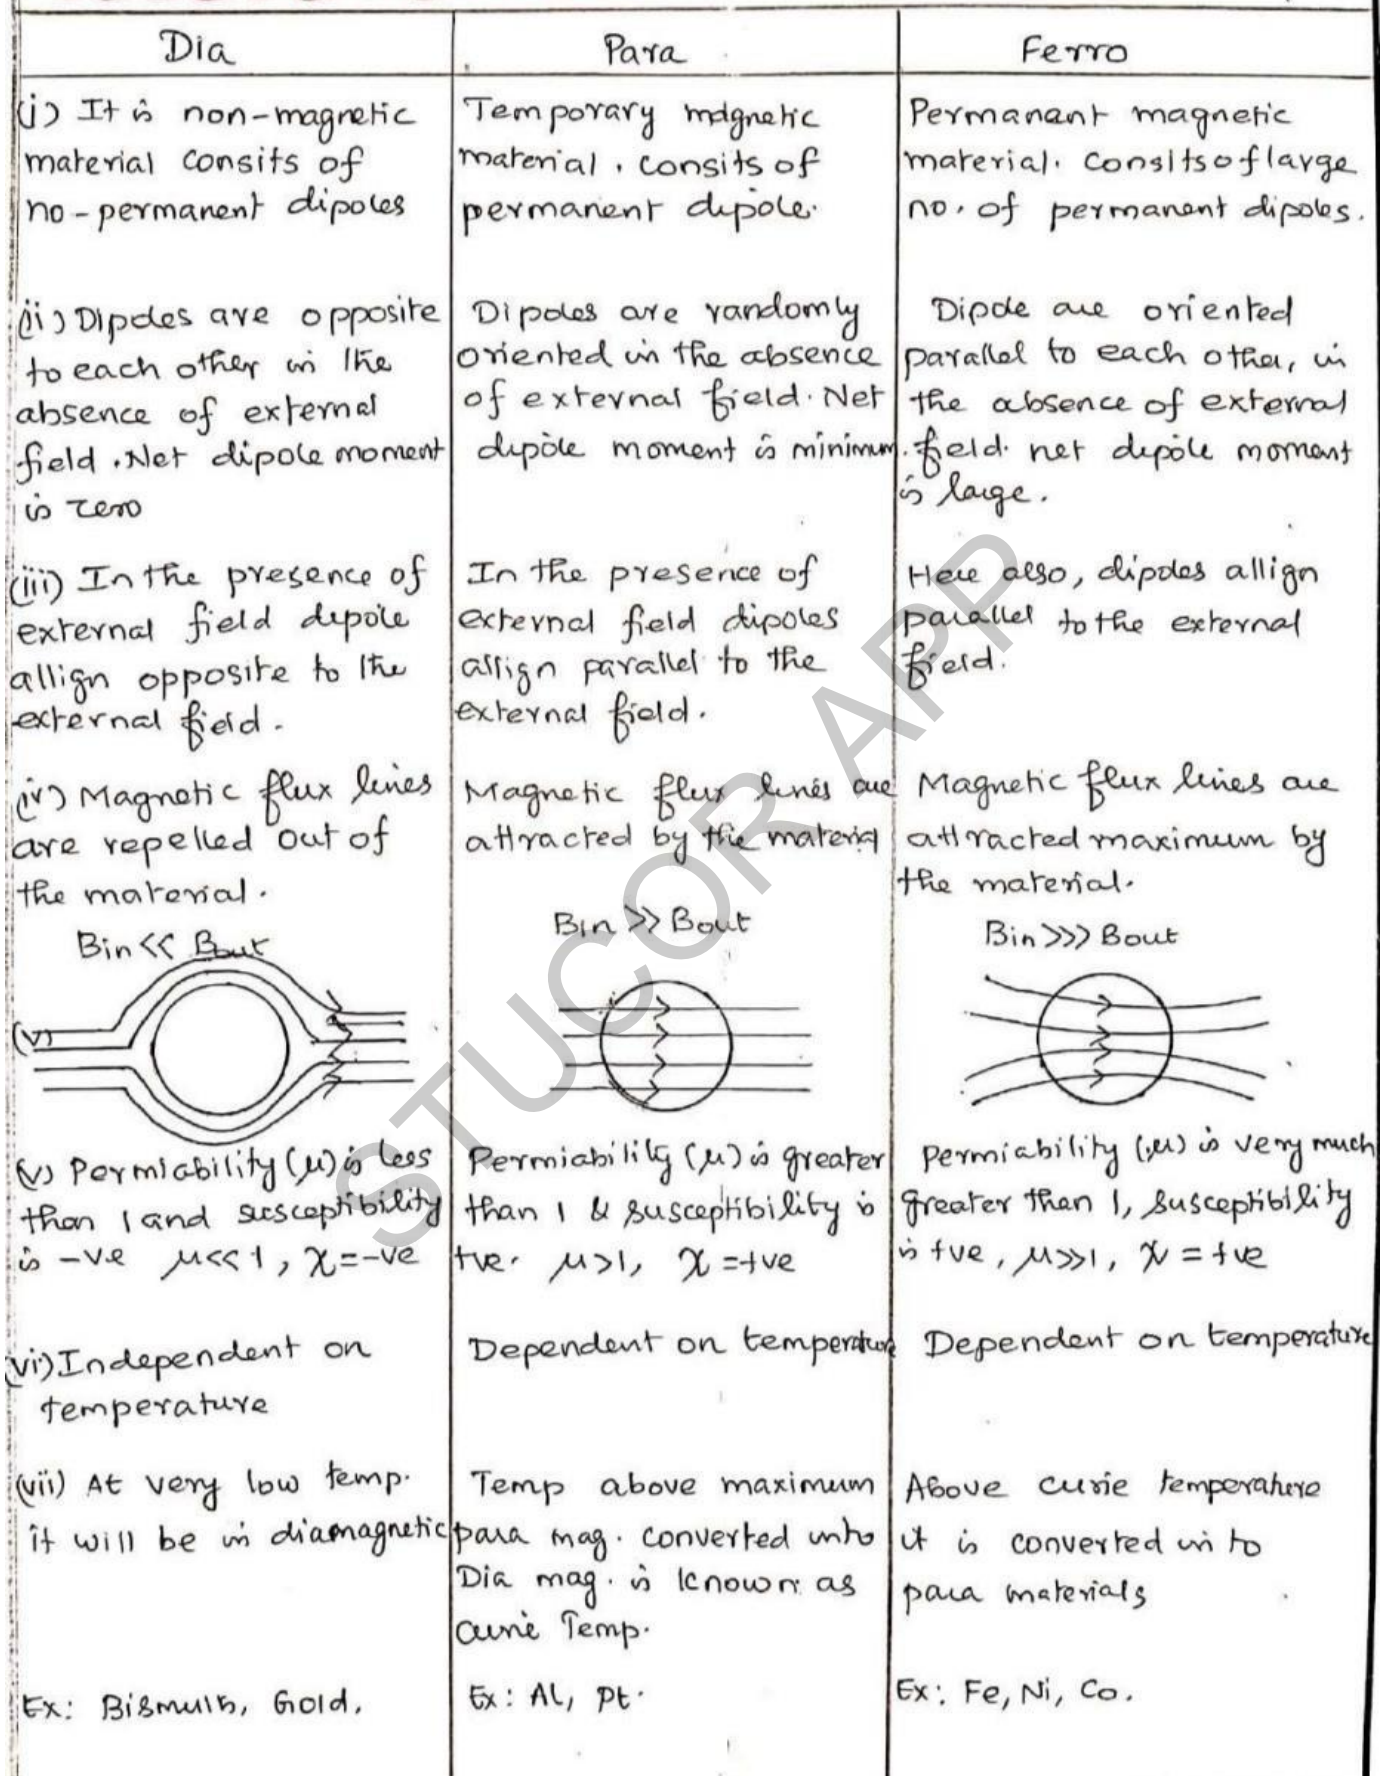 Dia
Para
Ferro
(i) It is non-magnetic
material consits of
no-permanent dipoles
Temporary magnetic
material. consits of
permanent dipole.
Permanant magnetic
material. consits of large
no. of permanent dipoles.
(ii) Dipoles are opposite
to each other in the
absence of external
field. Net dipole moment
is zero
Dipoles are randomly
oriented in the absence
of external field. Net
dipole moment is minimum.
Dipole are oriented
parallel to each other, in
the absence of external
field. net dipole moment
is large.
(iii) In the presence of
external field dipole
allign opposite to the
external field.
In the presence of
external field dipoles
allign parallel to the
external field.
Here also, dipoles allign
parallel to the external
field.
(iv) Magnetic flux lines
are repelled out of
the material.
Bin << Bout
Magnetic flux lines are
attracted by the material
Bin >> Bout
Magnetic flux lines are
attracted maximum by
the material.
Bin >>> Bout
(v)
(v) Permiability (μ) is less
than 1 and susceptibility
is -ve μ<<1, χ=-ve
Permiability (μ) is greater
than 1 & susceptibility is
+ve. μ>1, χ=+ve
Permiability (μ) is very much
greater than 1, susceptibility
is +ve, μ>>1, χ = +ve
(vi) Independent on
temperature
Dependent on temperature
Dependent on temperature
(vii) At very low temp.
it will be in diamagnetic
Temp above maximum
para mag. converted into
Dia mag. is known as
curie Temp.
Above curie temperature
it is converted in to
para materials
Ex: Bismuth, Gold.
Ex: Al, Pt.
Ex: Fe, Ni, Co.
STUCOR APP